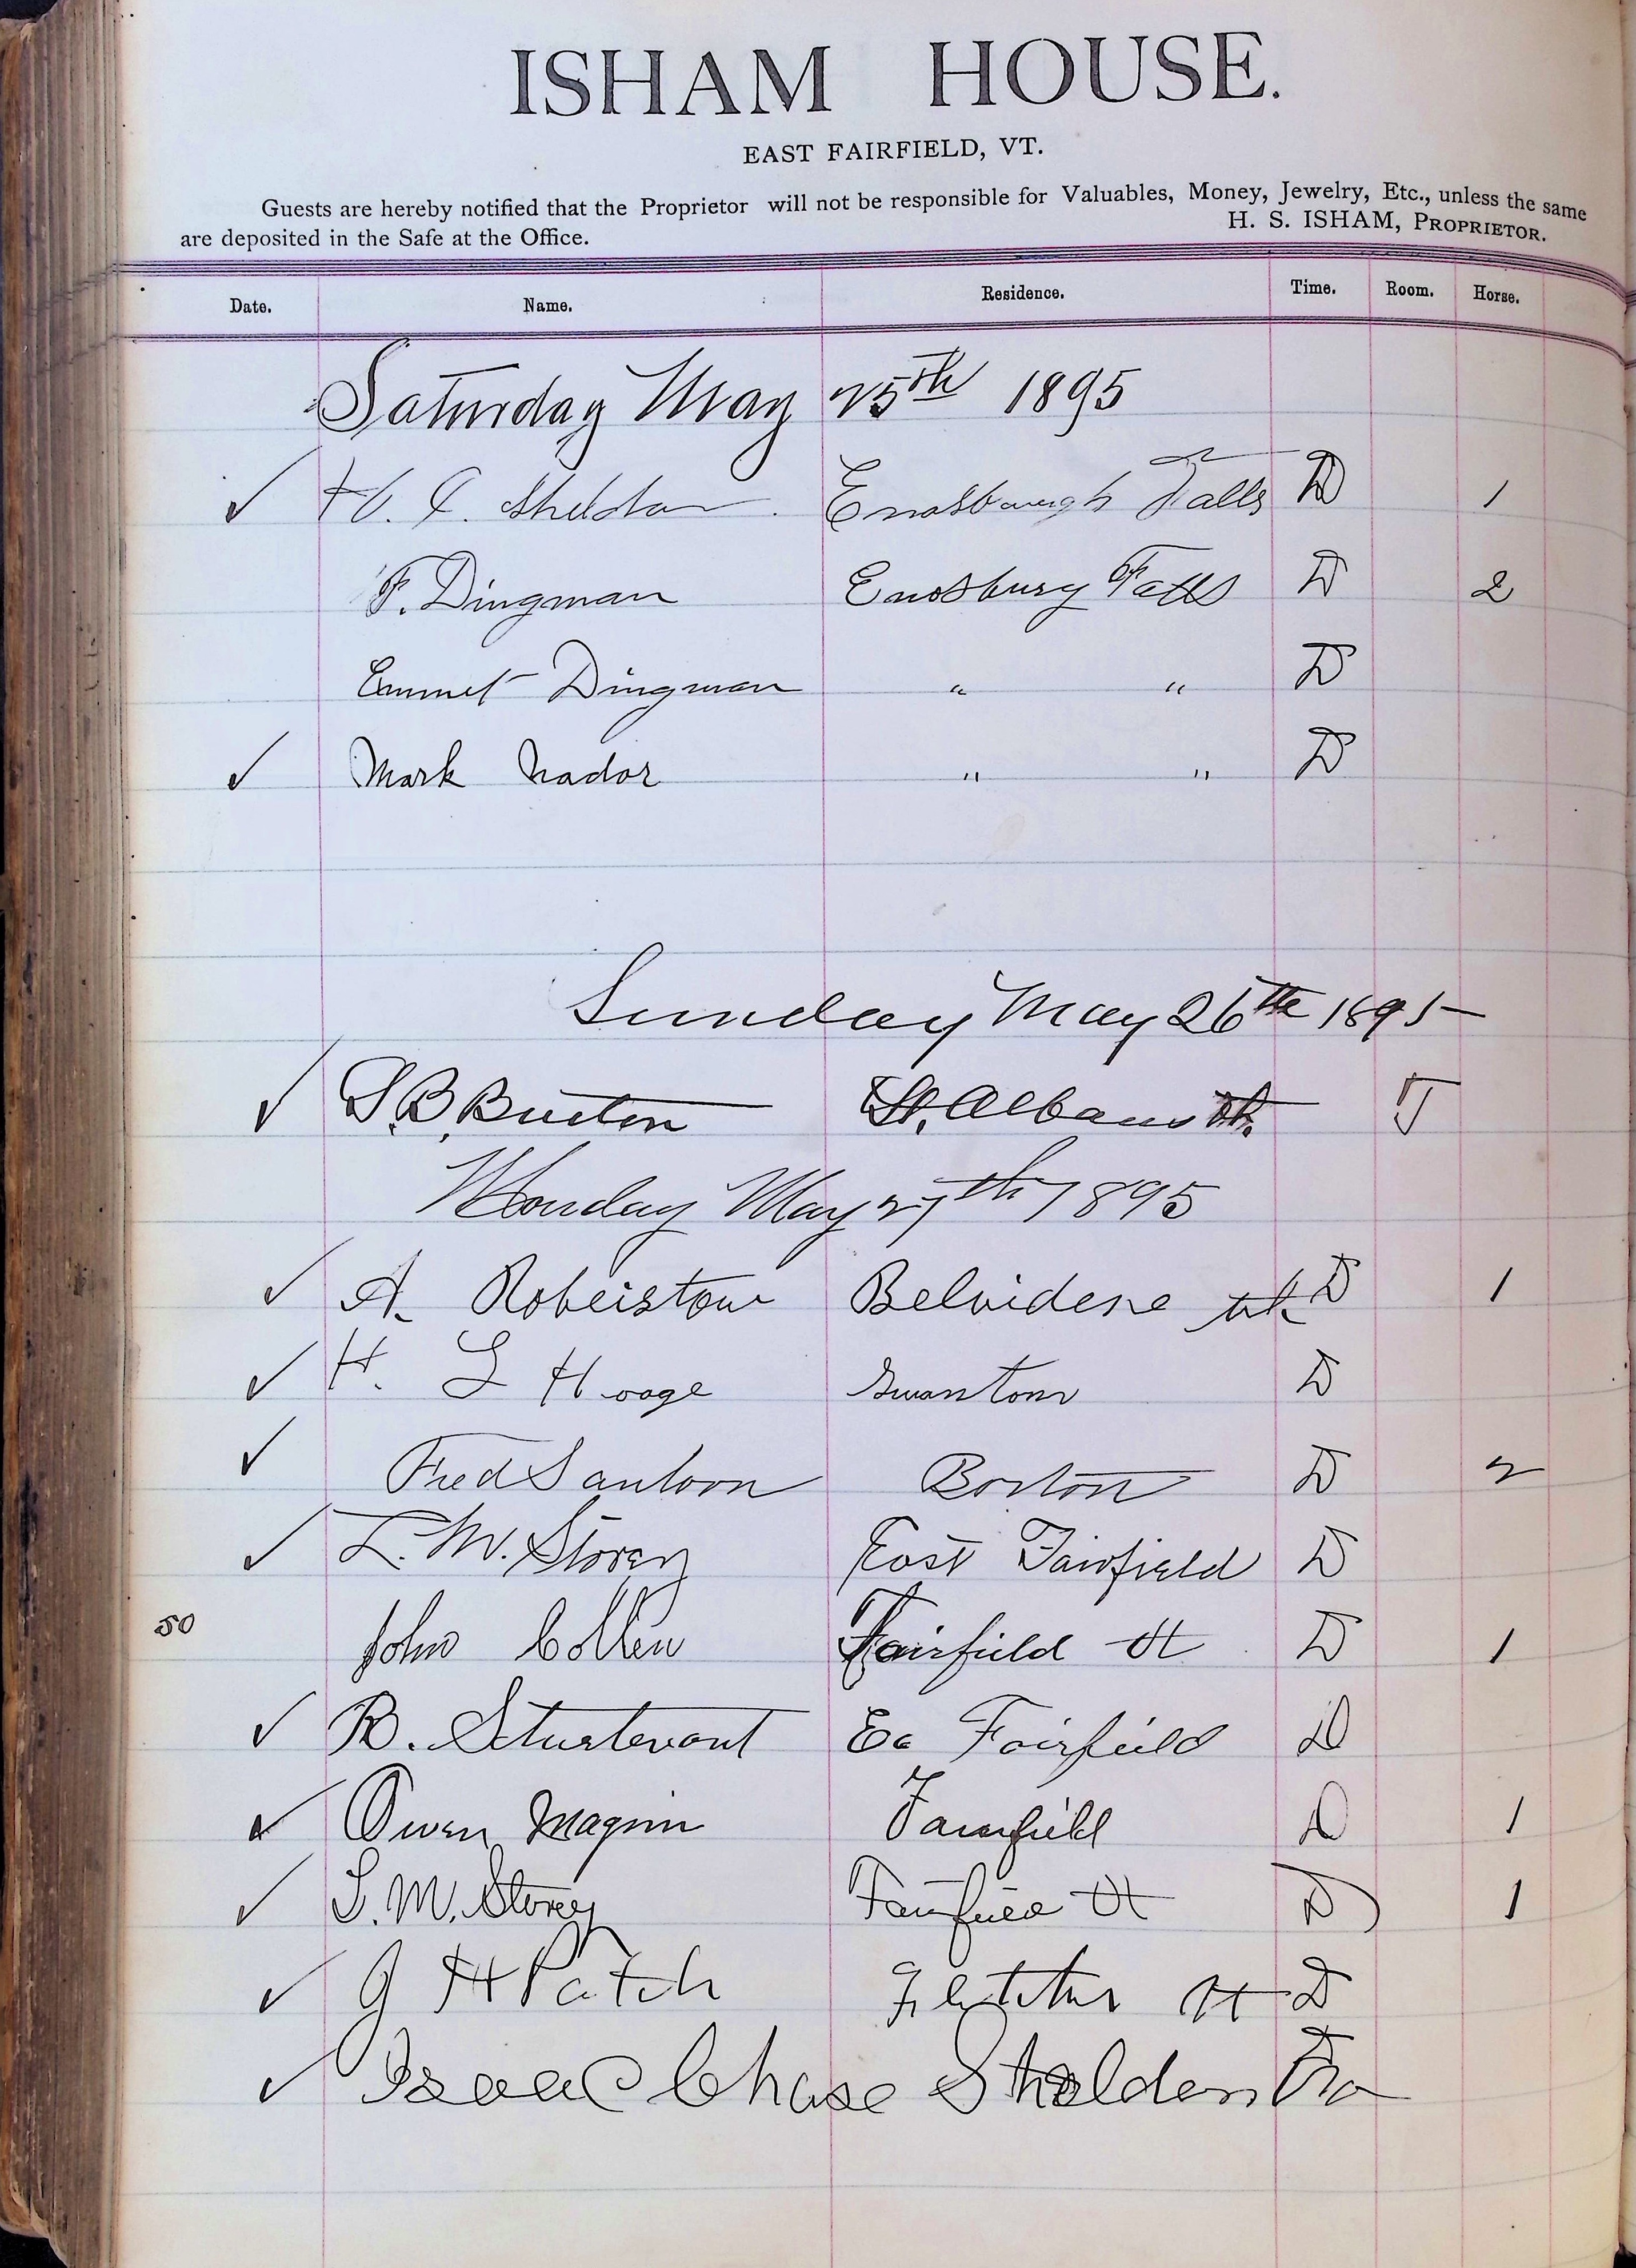 ISHAM HOUSE.
EAST FAIRFIELD, VT.
Guests are hereby notified that the Proprietor will not be responsible for Valuables, Money, Jewelry, Etc., unless the same
are deposited in the Safe at the Office. H. S. ISHAM, PROPRIETOR.
Date. Name. Residence. Time. Room. Horse.
Saturday May 25th 1895
✓ H. Sheldon Enosbough Falls D 1
F. Dingman Enosbury Falls D 2
Emmet Dingman " " D
✓ Mark Nador " " D
Sunday May 26th 1895
✓ S. B. Burton St. Albans Vt.
Monday May 27th 1895
✓ A. Robeistow Belvidere Vt D 1
✓ H. L Hooge Swanton D
✓ Fred Boston D 2
✓ L. M. Storey East Fairfield D
50 John Collen Fairfield Vt D 1
✓ R. Sturtevant Ea Fairfield D
✓ Owen Maginn Fairfield D 1
✓ S. M. Storey Fairfield Vt D 1
✓ J H Patch Fletcher Vt D
✓ Isaac Chase Sheldon